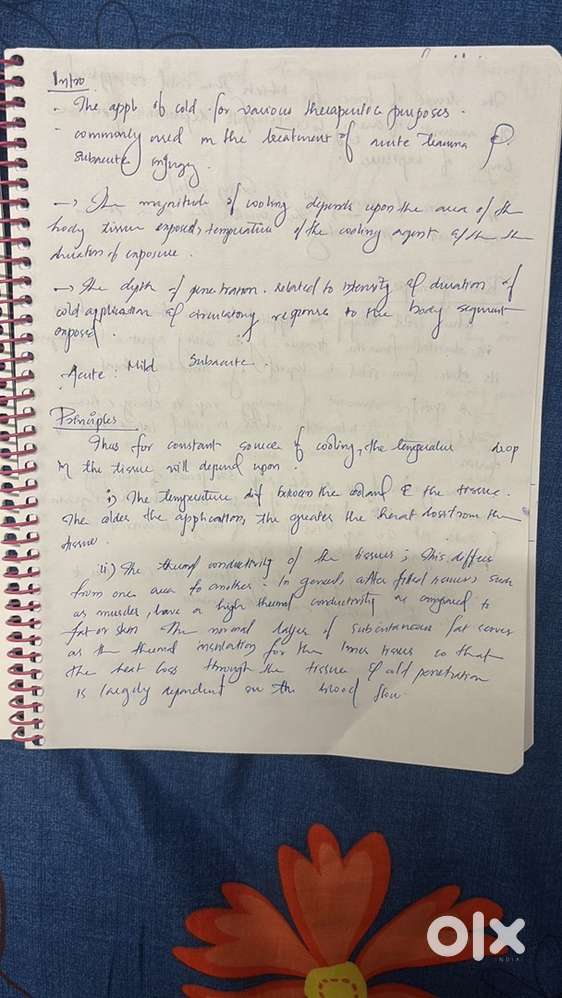 Intro
- The appl of cold for various therapeutic purposes.
- commonly used in the treatment of acute trauma &
subacute injury.
→ The magnitude of cooling depends upon the area of the
body tissue exposed, temperature of the cooling agent & the
duration of exposure.
→ The depth of penetration related to intensity & duration of
cold application & circulatory response to the body segment
exposed.
Acute: Mild Subacute
Principles
Thus for constant source of cooling, the temperature drop
in the tissue will depend upon.
i) The temperature dif between the and & the tissue.
The colder the application, the greater the heat lost from the
tissue.
ii) The thermal conductivity of the tissues; This differs
from one area to another. In general, filled such
as muscles, have a high thermal conductivity as compared to
fat or skin The normal layer of subcutaneous fat serves
as the thermal insulation for the inner tissues so that
the heat loss through the tissue & cold penetration
is largely dependent on the blood flow.
olx
INDIA